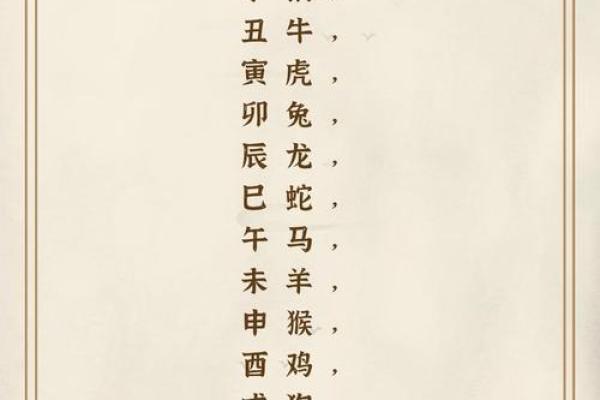 丑 牛，
寅 虎，
卯 兔，
辰 龙，
巳 蛇，
午 马，
未 羊，
申 猴，
酉 鸡，